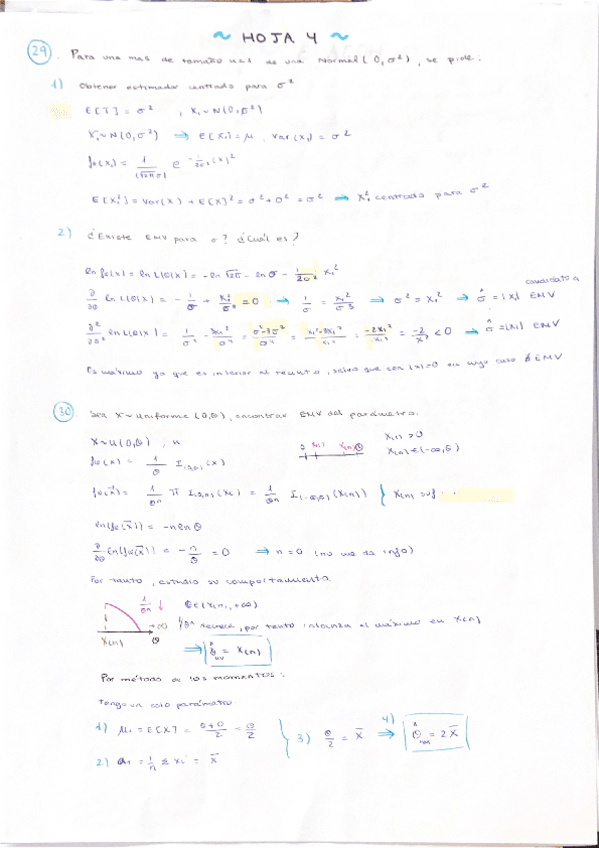 ~ HOJA 4 ~
29. Para una mas de tamaño n=1 de una Normal (0, σ²), se pide:
1) Obtener estimador centrado para σ²
E[T] = σ² , X₁ ~ N(0, σ²)
X₁ ~ N(0, σ²) ⇒ E[X₁] = μ , Var(X₁) = σ²
fσ(x₁) = 1/(√2π σ) e^(-1/2σ² (x)²)
E[X₁²] = Var(X) + E(X)² = σ² + 0² = σ² ⇒ X₁² centrado para σ²
2) ¿Existe EMV para σ? ¿Cuál es?
ln fσ(x) = ln L(θ|x) = -ln √2π - ln σ - 1/2σ² x₁²
∂/∂σ ln L(θ|x) = -1/σ + x₁²/σ³ = 0 → 1/σ = x₁²/σ³ ⇒ σ² = x₁² ⇒ σ̂ = |x| candidato a EMV
∂²/∂σ² ln L(θ|x) = 1/σ² - 3x₁²/σ⁴ = = = -2x₁² = -2/x² < 0 → σ̂ = |x₁| EMV
Es máximo ya que es interior al , salvo que sea |x|=0 en cuyo caso ∄ EMV
30 Sea X ~ Uniforme (0,θ), encontrar EMV del parámetro.
X ~ U(0,θ) , n
0 X(1) X(n) θ
X(1) > 0
X(n) ∈ (-∞, θ)
fθ(x) = 1/θ I(0,θ) (x)
fθ(x⃗) = 1/θⁿ Π I(0,θ) (xᵢ) = 1/θⁿ I(-∞,θ) (X(n)) } X(n) suf
ln(fθ(x⃗)) = -n ln θ
∂/∂θ ln(fθ(x⃗)) = -n/θ = 0 ⇒ n = 0 (no me da info)
Por tanto, estudio su comportamiento
1/θⁿ ↓ θ ∈ (X(n), +∞)
1/θⁿ decrece, por tanto alcanza el máximo en X(n)
X(n) +∞ θ
⇒ θ̂ = X(n)
Por método de los momentos:
Tengo un solo parámetro
1) μ₁ = E[X] = θ+0/2 = θ/2
2) a₁ = 1/n Σ xᵢ = X̄
3) θ/2 = X̄
4) ⇒ θ̂ = 2X̄